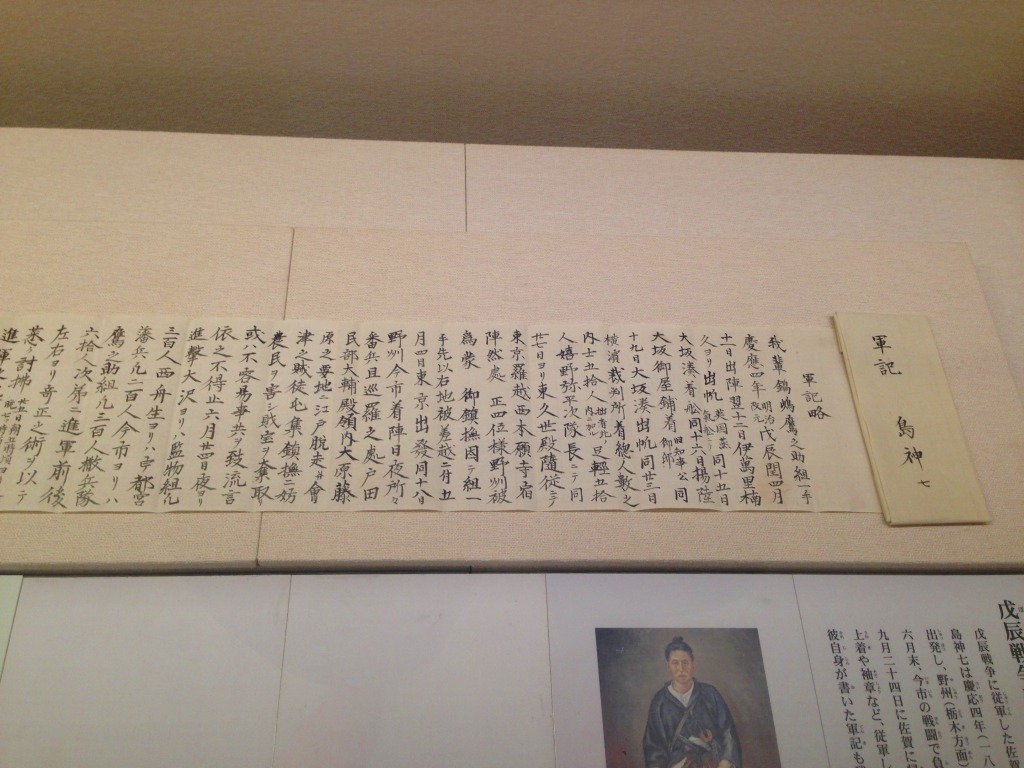 軍記
島神七
軍記略
我輩鍋嶋鷹之助組一手
慶應四年明治改元戊辰閏四月
十一日出陣翌十二日伊萬里楠
久ヨリ出帆英国蒸気舩ニノル同十五日
大坂湊着舩同十六日揚陸
大坂御屋鋪着御邸旧知事公同
十九日大坂湊出帆同廿三日
横濱裁判所着總人數之
内士五拾人旦輕五拾
人嬉野弥平次隊長ニテ同
廿七日ヨリ東久世殿隨従ニテ
東京羅越西本願寺宿
陣然處正四位様野州被
為蒙御鎮撫因テ組一
手先以右地被差越二月五
月四日東京出發同十八日
野州今市着陣日夜所々
番兵且巡羅之處戸田
民部大輔殿領内大原藤
原之要地ニ江戸脱走并會
津之賊徒屯集鎮撫ニ妨
農民ヲ害シ賊宝ヲ奪取
或ハ不容易事共ヲ致流言
依之不得止六月廿四日夜ヨリ
進撃大沢ヨリハ監物組凡
三百人西舟生ヨリハ宇都宮
藩兵凡二百人今市ヨリハ
鷹之助組凡三百人撒兵隊
六拾人次第ニ進軍前後
左右ヨリ奇正之術ヲ以テ
戊辰戦争
戊辰戦争に従軍した佐賀
島神七は慶応四年（一八
出発し、野州（栃木方面）
六月末、今市の戦闘で負
九月二十四日に佐賀に
上着や袖章など、従軍し
彼自身が書いた軍記も